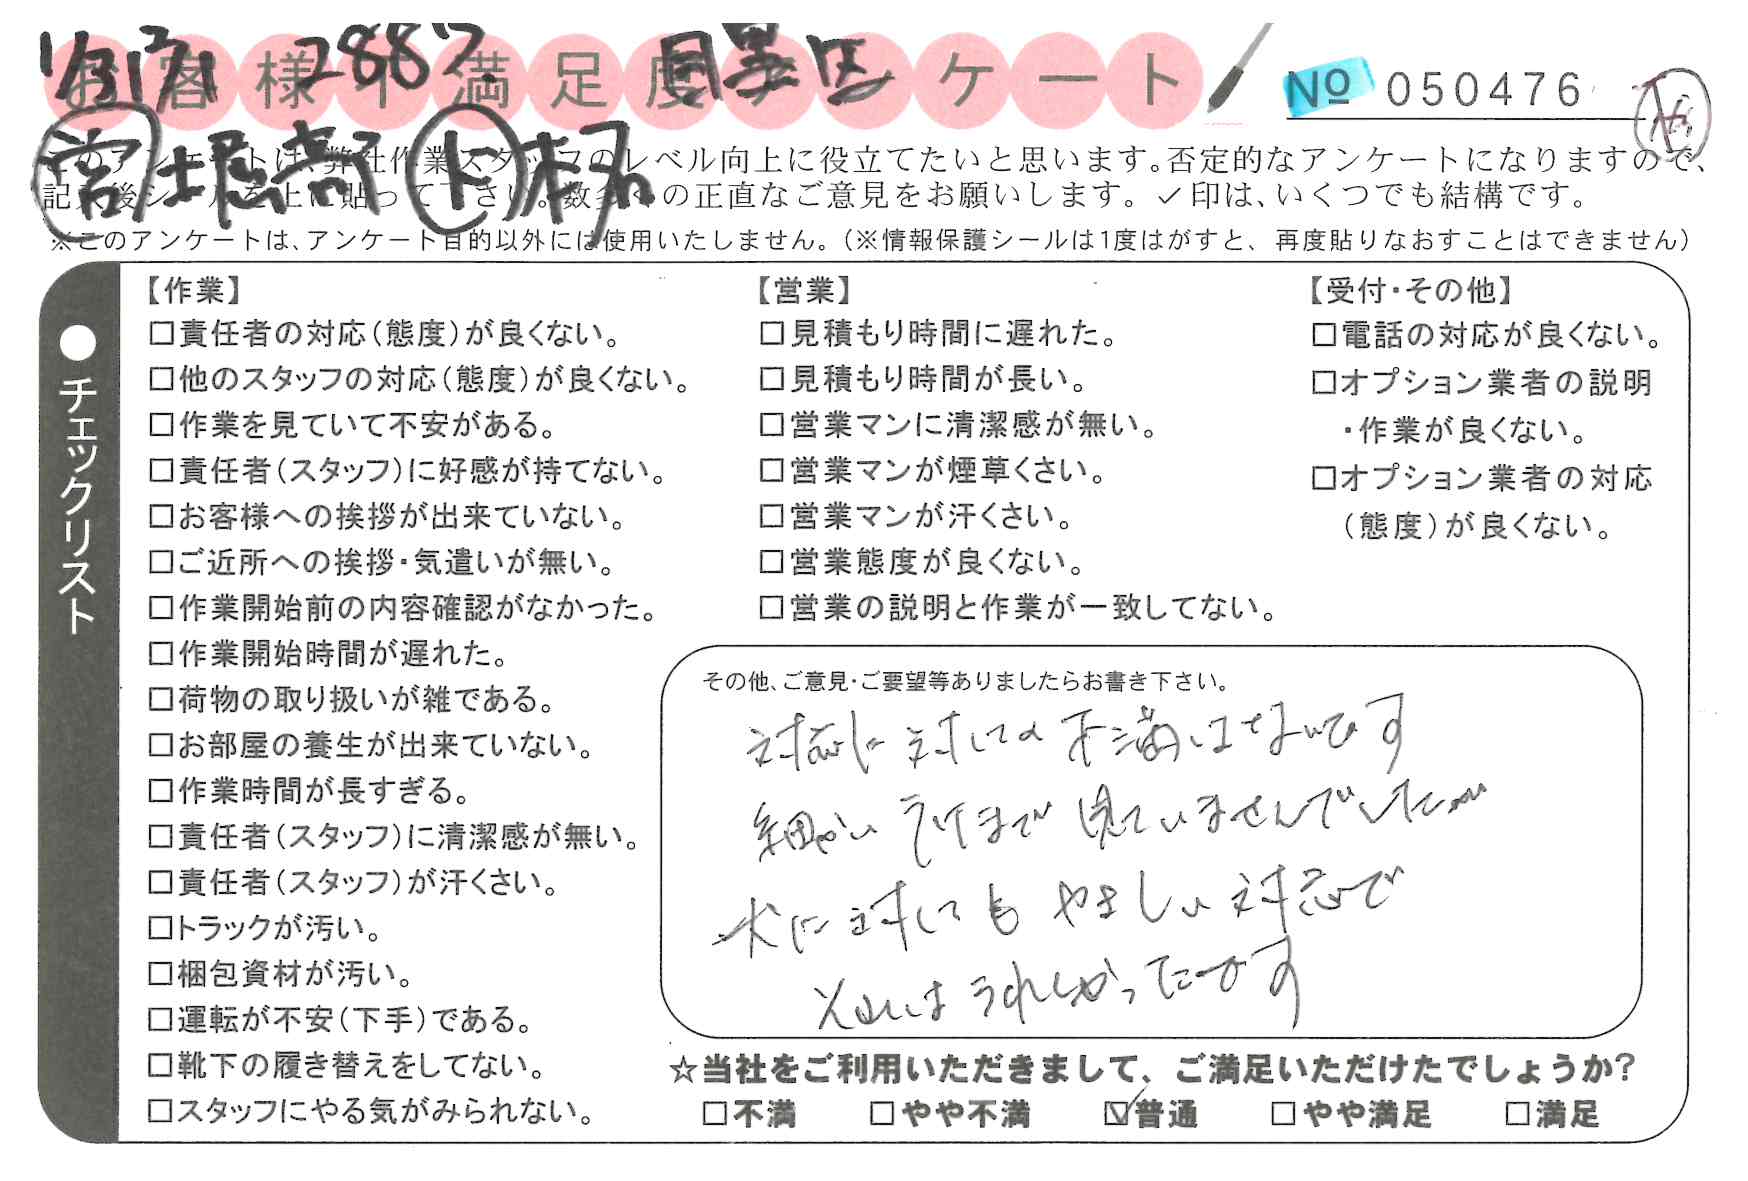 1/31 ア1 2887 目黒区
お客様不満足度アンケート
№ 050476
宮 堀部 下 桜
このアンケートは、弊社作業スタッフのレベル向上に役立てたいと思います。否定的なアンケートになりますので、
記入後シールを上に貼って下さい。数多くの正直なご意見をお願いします。✓印は、いくつでも結構です。
※このアンケートは、アンケート目的以外には使用いたしません。（※情報保護シールは1度はがすと、再度貼りなおすことはできません）
●チェックリスト
【作業】
□責任者の対応（態度）が良くない。
□他のスタッフの対応（態度）が良くない。
□作業を見ていて不安がある。
□責任者（スタッフ）に好感が持てない。
□お客様への挨拶が出来ていない。
□ご近所への挨拶・気遣いが無い。
□作業開始前の内容確認がなかった。
□作業開始時間が遅れた。
□荷物の取り扱いが雑である。
□お部屋の養生が出来ていない。
□作業時間が長すぎる。
□責任者（スタッフ）に清潔感が無い。
□責任者（スタッフ）が汗くさい。
□トラックが汚い。
□梱包資材が汚い。
□運転が不安（下手）である。
□靴下の履き替えをしてない。
□スタッフにやる気がみられない。
【営業】
□見積もり時間に遅れた。
□見積もり時間が長い。
□営業マンに清潔感が無い。
□営業マンが煙草くさい。
□営業マンが汗くさい。
□営業態度が良くない。
□営業の説明と作業が一致してない。
【受付・その他】
□電話の対応が良くない。
□オプション業者の説明
・作業が良くない。
□オプション業者の対応
（態度）が良くない。
その他、ご意見・ご要望等ありましたらお書き下さい。
対応に対しての不満はないです
細かい所まで見ていませんでしたが
犬に対してもやさしい対応で
それはうれしかったです
☆当社をご利用いただきまして、ご満足いただけたでしょうか？
□不満 □やや不満 ☑普通 □やや満足 □満足